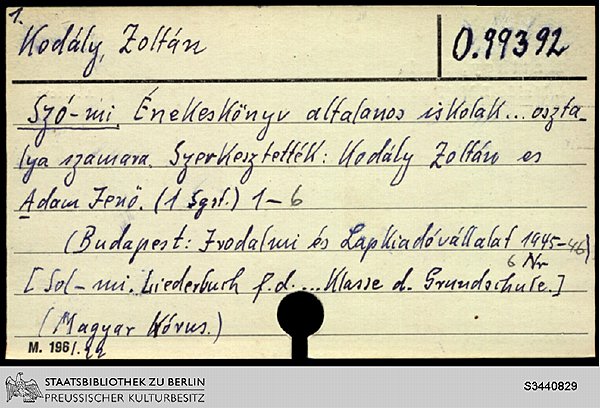 1.
Kodály, Zoltán
O.99392
Szó-mi. Énekeskönyv altalanos iskolak... oszta-
lya szamara. Szerkesztették: Kodály Zoltán es
Adam Jenö. (1 Sgst.) 1-6
(Budapest: Irodalmi és Lapkiadóvállalat 1945-46)
6 Nr
[Sol-mi. Liederbuch f.d. ... Klasse d. Grundschule.]
(Magyar Kórus.)
M. 196/.22
STAATSBIBLIOTHEK ZU BERLIN
PREUSSISCHER KULTURBESITZ
S3440829